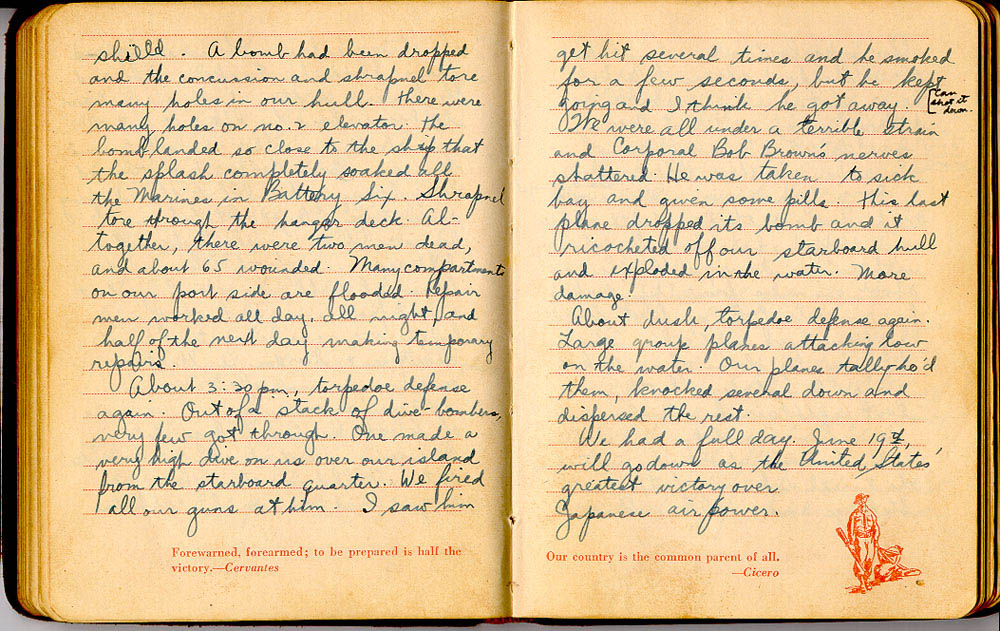 shield. A bomb had been dropped
and the concussion and shrapnel tore
many holes in our hull. There were
many holes on no. 2 elevator. The
bomb landed so close to the ship that
the splash completely soaked all
the Marines in Battery Six. Shrapnel
tore through the hangar deck. Al-
together, there were two men dead,
and about 65 wounded. Many compartments
on our port side are flooded. Repair
men worked all day, all night, and
half of the next day making temporary
repairs.
About 3:30 pm, torpedoe defense
again. Out of a stack of dive-bombers,
very few got through. One made a
very high dive on us over our island
from the starboard quarter. We fired
all our guns at him. I saw him
Forewarned, forearmed; to be prepared is half the
victory.—Cervantes
get hit several times and he smoked
for a few seconds, but he kept
going and I think he got away.
Can
shot it
down.
We were all under a terrible strain
and Corporal Bob Brown's nerves
shattered. He was taken to sick
bay and given some pills. This last
plane dropped its bomb and it
ricocheted off our starboard hull
and exploded in the water. More
damage.
About dusk, torpedoe defense again.
Large group planes attacking low
on the water. Our planes tally-ho'd
them, knocked several down and
dispersed the rest.
We had a full day. June 19th,
will go down as the United States'
greatest victory over
Japanese air power.
Our country is the common parent of all.
—Cicero